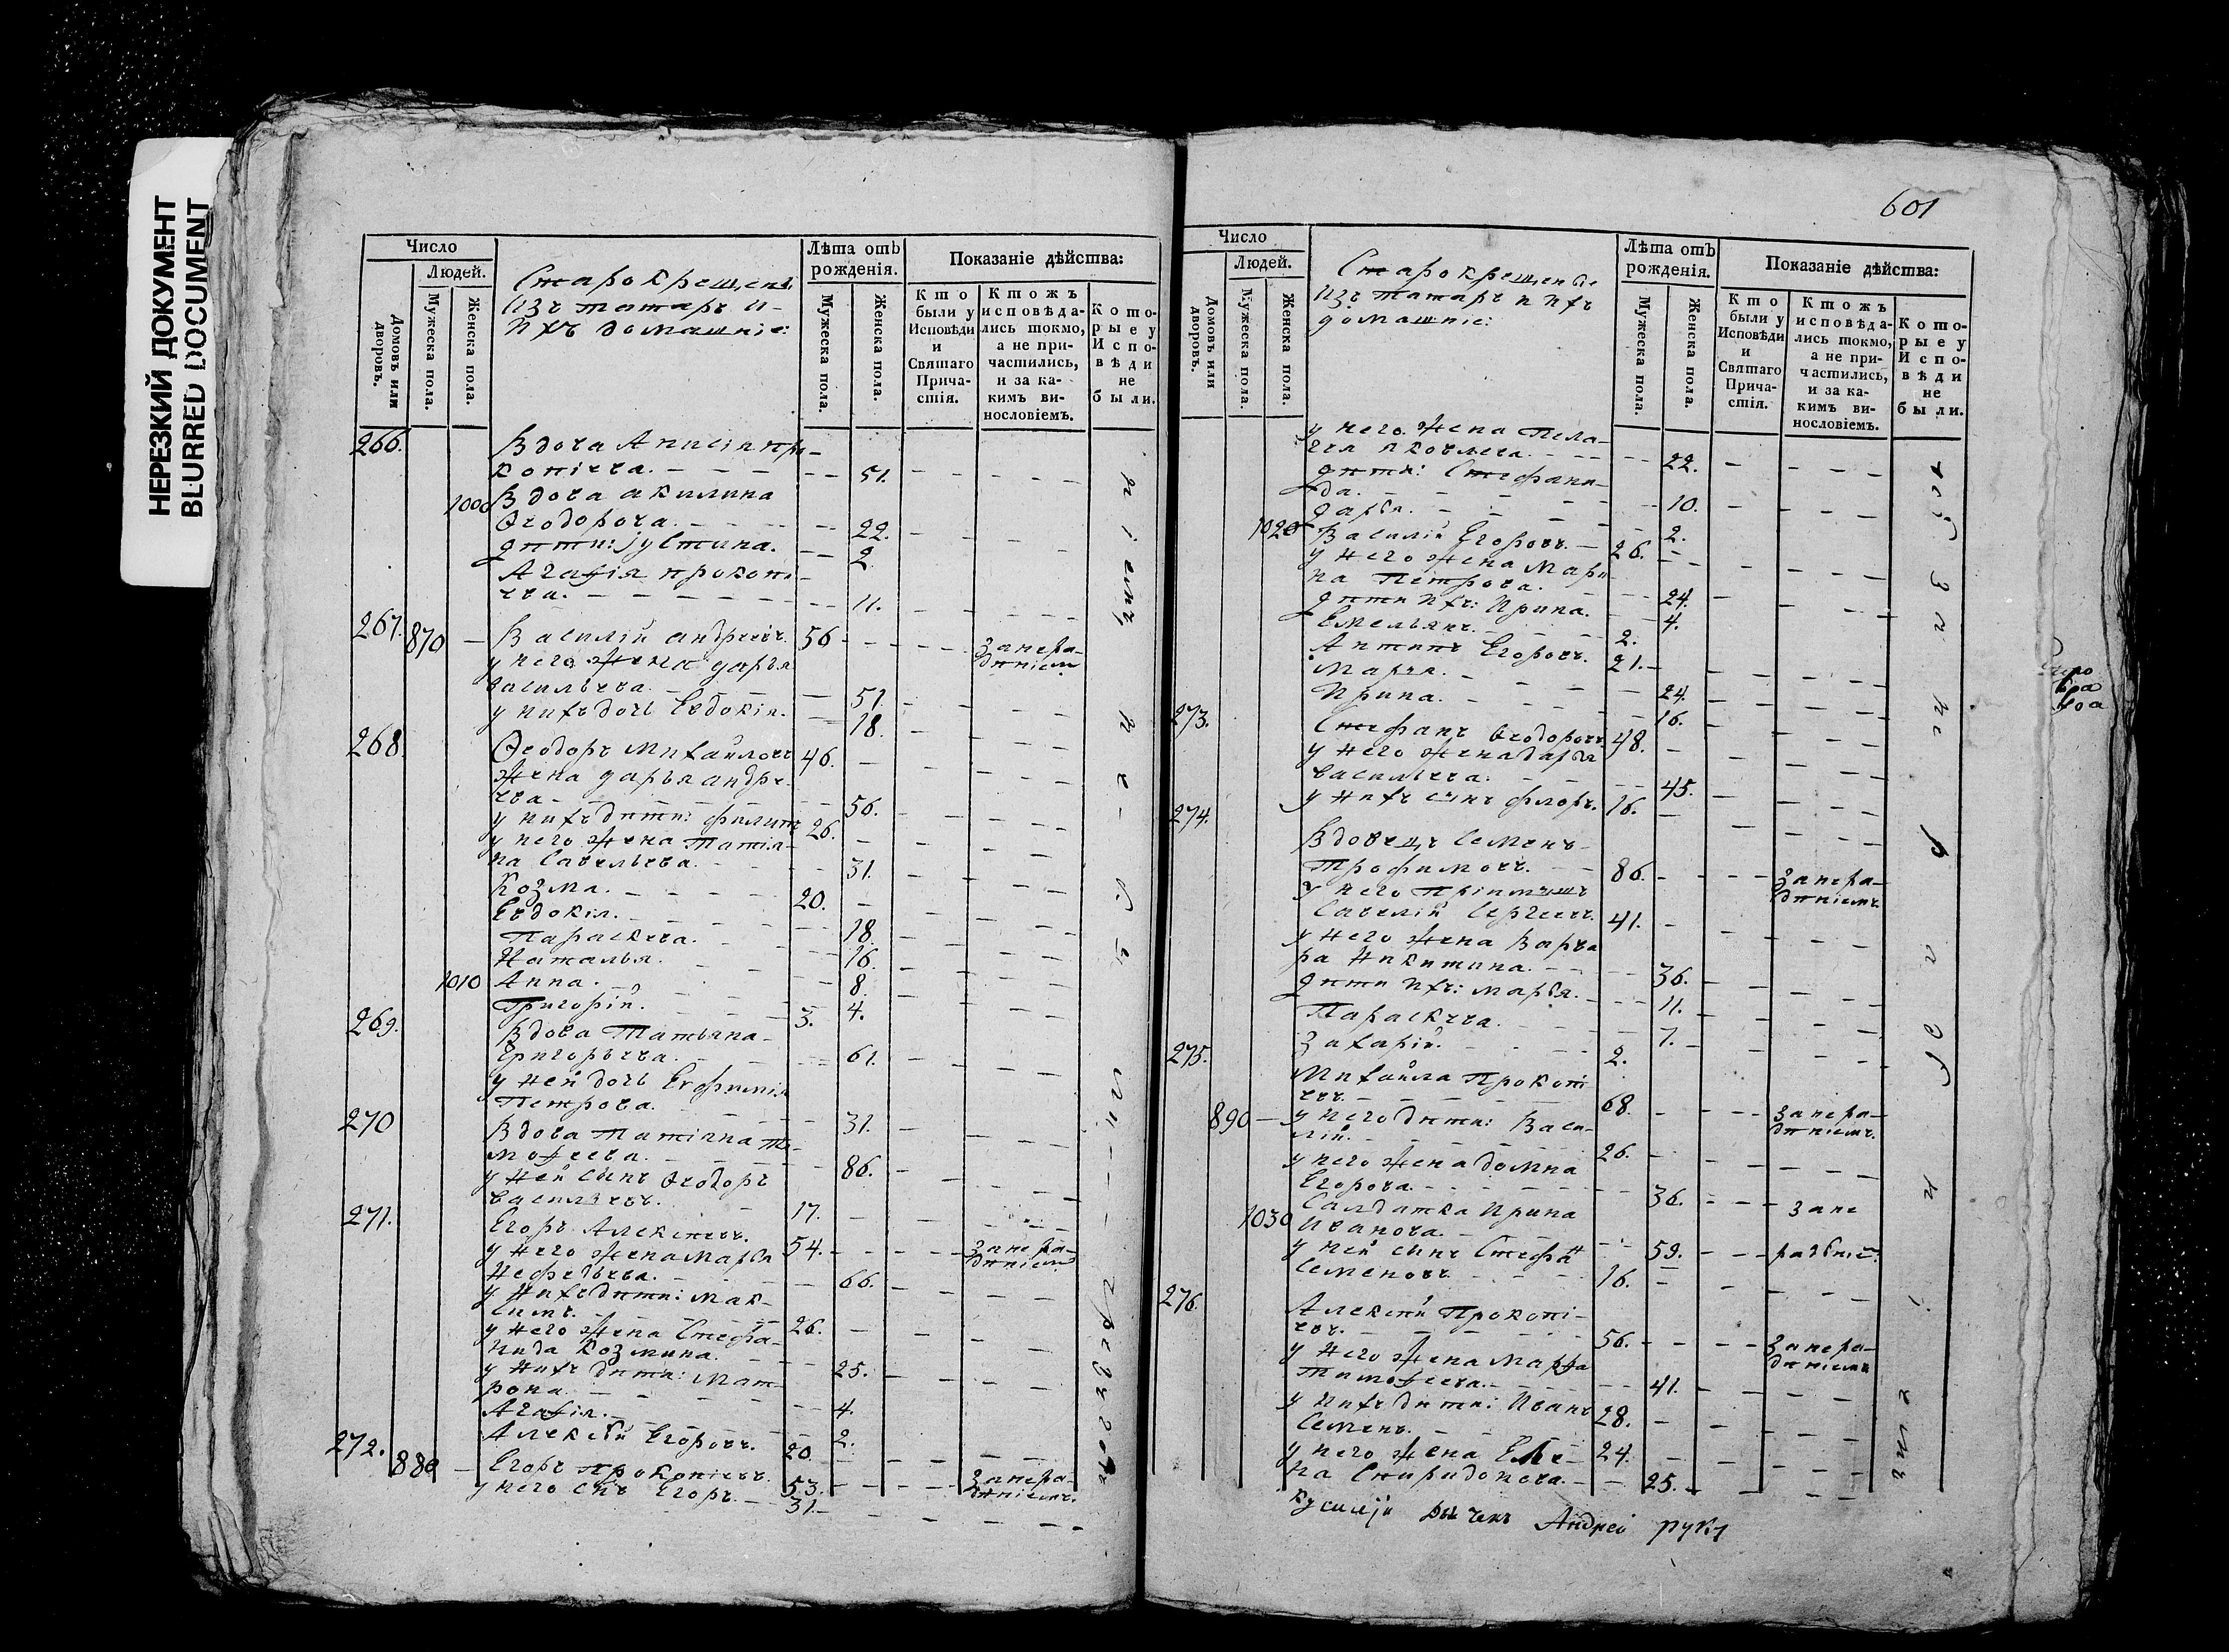 НЕРЕЗКИЙ ДОКУМЕНТ
BLURRED DOCUMENT
Число
Людей.
Домовъ или дворовъ.
Мужеска пола.
Женска пола.
Старокрещены
изъ татаръ и
ихъ домашніе:
Лѣта отъ рожденія.
Мужеска пола.
Женска пола.
Показаніе дѣйства:
Кто были у Исповѣди и Святаго Причастія.
Ктожъ исповѣдались токмо, а не причастились, и за какимъ винословіемъ.
Которые у Исповѣди не были.
266. Вдова Анисія про-
копіева. 51.
1000 Вдова акилина
Ѳеодорова. 22.
дѣти: іустина. 2.
Агафія прокопі-
ева. 11.
267. 870 Василій андреевъ. 56 за нера-
дѣніемъ
у него жена дарья
васильева. 51.
у нихъ дочь Евдокія. 18.
268. Ѳеодоръ михайловъ 46.
жена дарья андре-
ева 56.
у нихъ дѣти: филипъ 26.
у него жена татія-
на савельева. 31.
Козма. 20.
Евдокія. 18.
Параскева. 16.
Наталья. 8.
1010 Анна. 4.
Григорій. 3.
269. Вдова Татьяна
Григорьева. 61.
у ней дочь Евфимія
Петрова. 31.
270 Вдова татіяна ти-
мофеева. 86.
у ней сынъ Ѳеодоръ
васильевъ. 17.
271. Егоръ Алексѣевъ. 54. за нера-
дѣніемъ
у него жена марья
Нефедьева. 66.
у нихъ дѣти: мак-
симъ. 26.
у него жена Стефа-
нида козмина. 25.
у нихъ дѣти: мат-
рона. 4.
Агафія. 2.
Алексѣй Егоровъ. 20.
272. 880 Егоръ прокопіевъ. 53. за нера-
дѣніемъ.
у него снъ Егоръ. 31.
601
Число
Людей.
Домовъ или дворовъ.
Мужеска пола.
Женска пола.
Старокрещены
изъ татаръ и ихъ
домашніе:
Лѣта отъ рожденія.
Мужеска пола.
Женска пола.
Показаніе дѣйства:
Кто были у Исповѣди и Святаго Причастія.
Ктожъ исповѣдались токмо, а не причастились, и за какимъ винословіемъ.
Которые у Исповѣди не были.
у него жена Пела-
гея яковлева. 22.
дѣти: Стефани-
да. 10.
дарья. 2.
1020 Василій Егоровъ. 26.
у него жена мари-
на Петрова. 24.
дѣти ихъ: Ирина. 4.
Емельянъ. 2.
Антипъ Егоровъ. 21.
Марья. 24.
Ирина. 16.
273. Стефанъ Ѳеодоровъ 48.
у него жена дарья
васильева. 45.
у нихъ сынъ флоръ. 16.
274. Вдовецъ Семенъ
Трофимовъ. 86. за нера-
дѣніемъ.
у него пріимышъ
Савелій Сергеевъ. 41.
у него жена варва
ра Никитина. 36.
дѣти ихъ: марья. 11.
Параскева. 7.
Захарій. 2.
275. Михайла Прокопі
евъ. 68. за нера-
дѣніемъ.
890 у него дѣти: Васи-
лій. 26.
у него жена домна
Егорова. 36.
1030 Салдатка Ирина
Иванова. 59.
у ней сынъ Стефан
Семеновъ. 16.
276. Алексѣй Прокопі-
евъ. 56. за нера-
дѣніемъ
у него жена марфа
тимофеева. 41.
у нихъ дѣти: Иванъ 28.
Семенъ. 24.
у него жена Еле-
на Спиридонова. 25.
Андрей руку